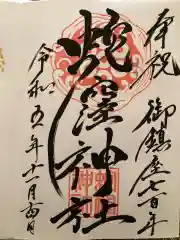 奉祝
御鎮座七百年
蛇窪神社
令和五年十一月